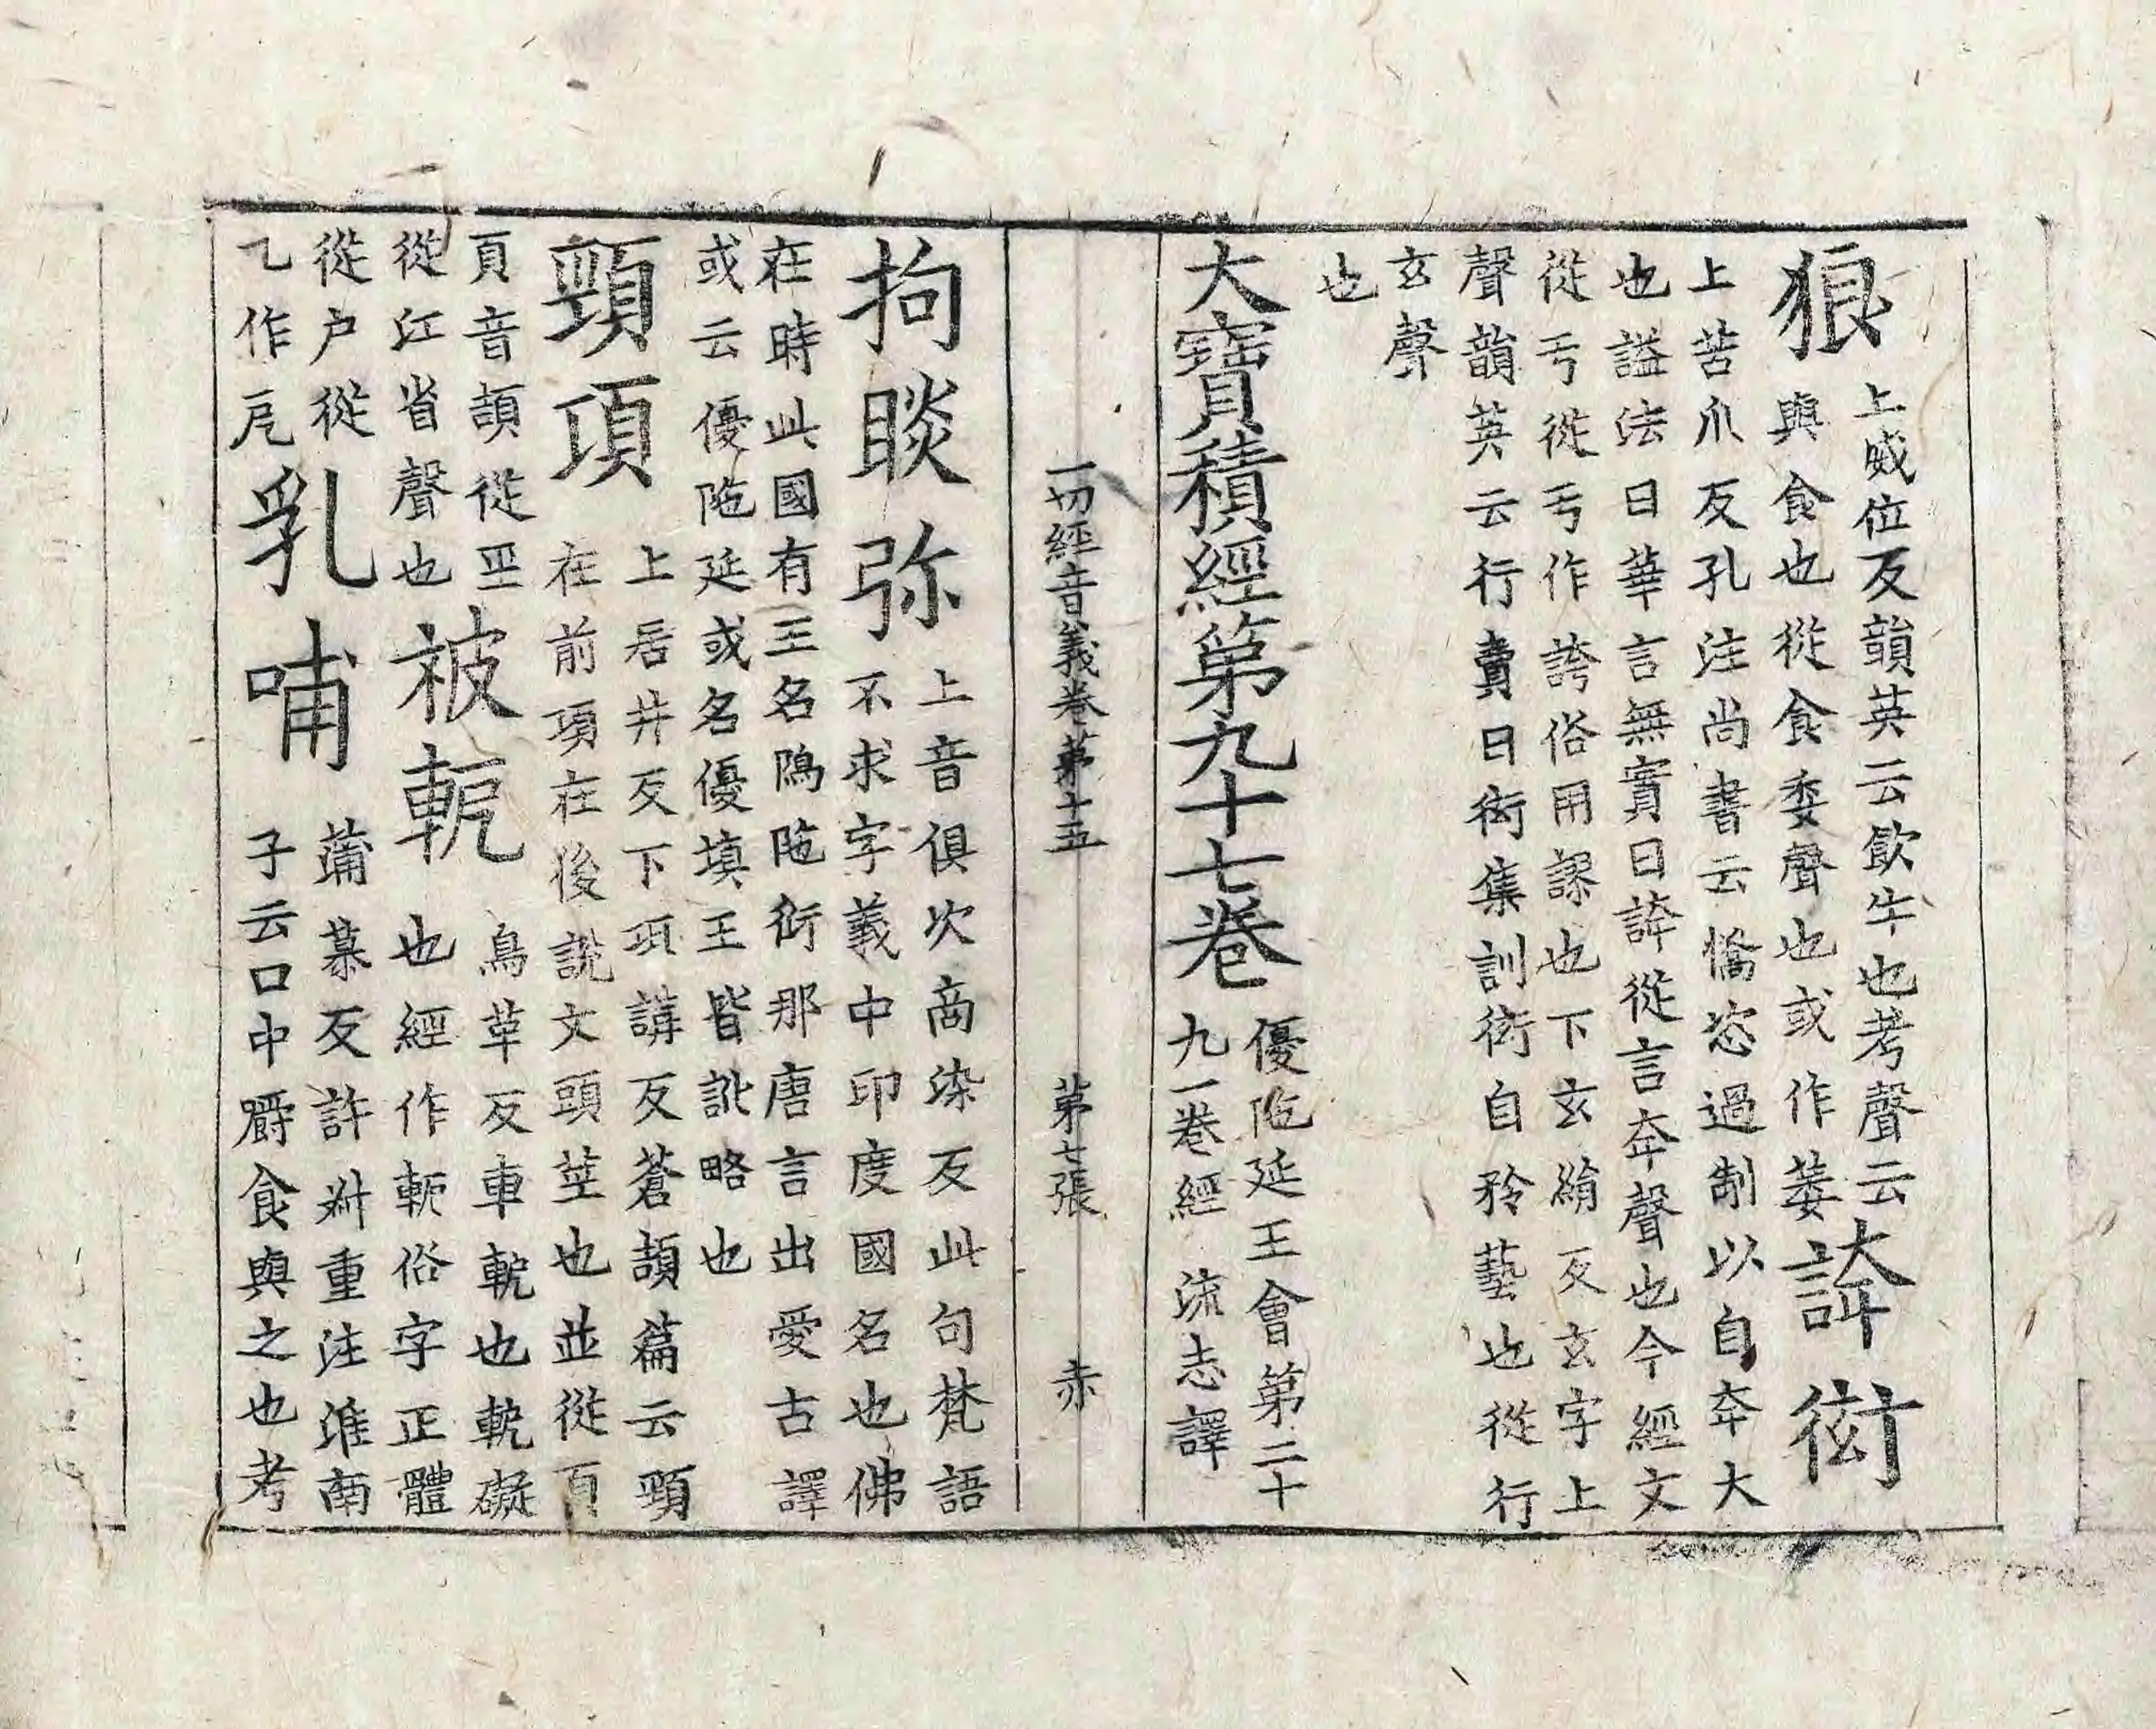 狼 上威位反韻英云飲牛也考聲云
與食也從食委聲也或作萎 誇衒
上苦爪反孔注尚書云憍恣過制以自夸大
也謚法曰華言無實曰誇從言夸聲也今經文
從亏從亏作誇俗用謬也下玄絹反玄字上
聲韻英云行賣曰衒集訓衒自矜藝也從行
玄聲
也
大寶積經第九十七卷 優陁延王會第二十
九一卷經 流志譯
一切經音義卷第十五 第七張 赤
拘睒弥 上音俱次商染反此句梵語
不求字義中印度國名也佛
在時此國有王名隖陁衍那唐言出愛古譯
或云優陁延或名優填王皆訛略也
頸項 上居井反下項講反蒼頡篇云頸
在前項在後說文頭莖也並從頁
頁音頡從巠
從江省聲也 被軛 烏革反車軛也軛礙
也經作軶俗字正體
從户從
乙作戹 乳哺 蒲慕反許叔重注淮南
子云口中嚼食與之也考